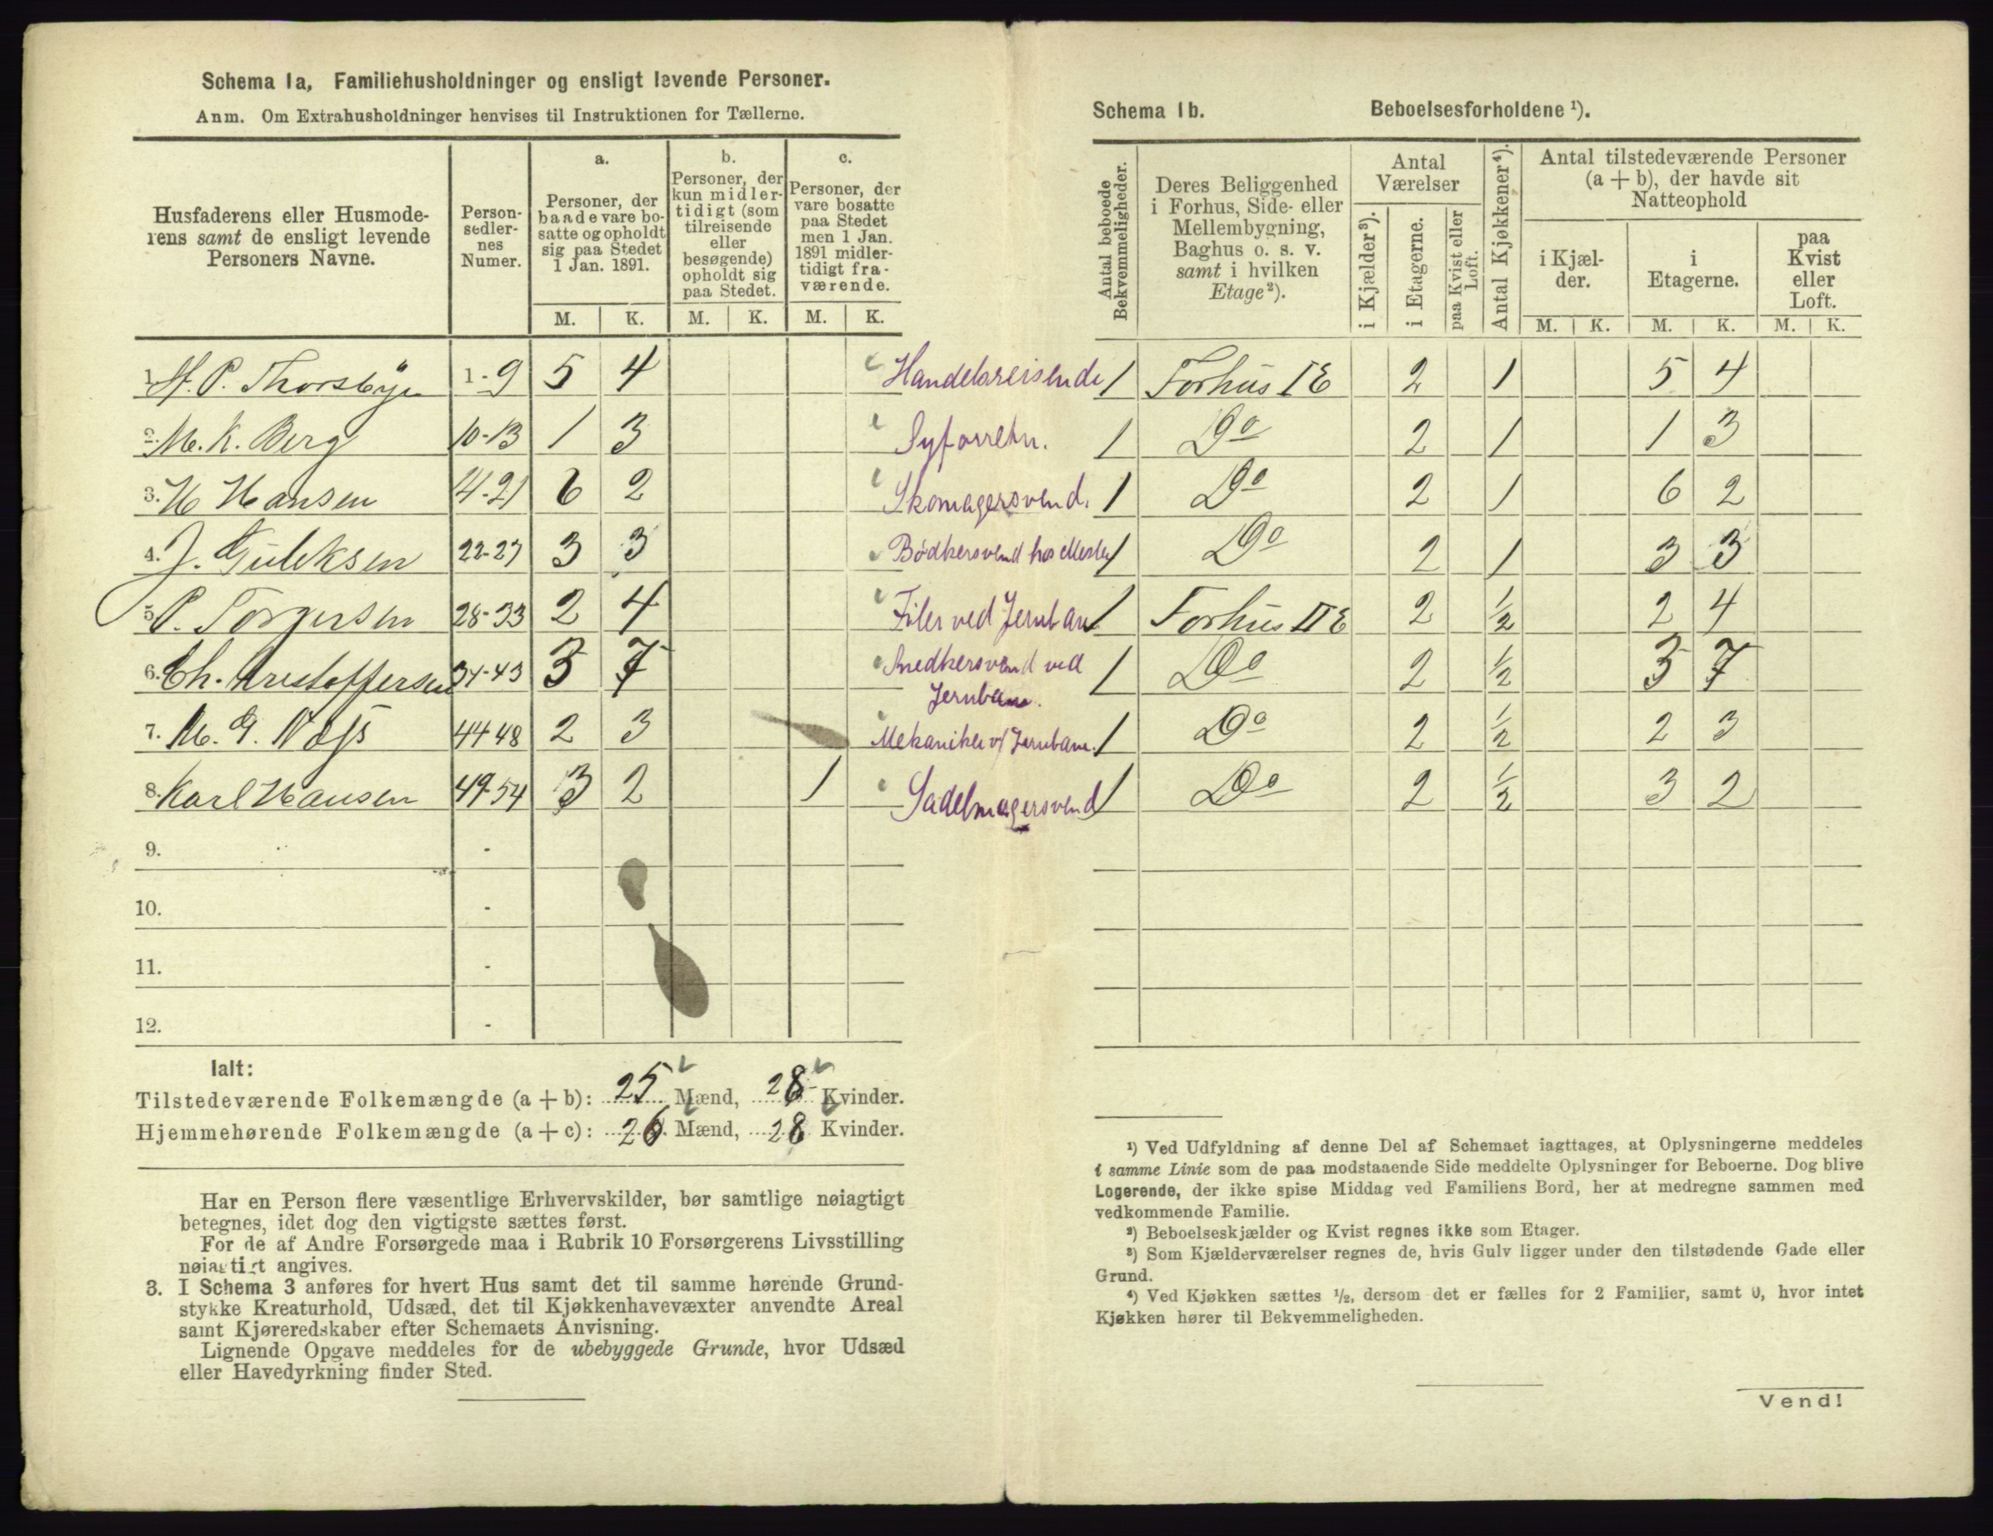 Schema 1a, Familiehusholdninger og ensligt levende Personer.
Anm. Om Extrahusholdninger henvises til Instruktionen for Tællerne.
Husfaderens eller Husmode-
rens samt de ensligt levende
Personers Navne.
Person-
sedler-
nes
Numer.
a.
Personer, der
baade vare bo-
satte og opholdt
sig paa Stedet
1 Jan. 1891.
b.
Personer, der
kun midler-
tidigt (som
tilreisende
eller
besøgende)
opholdt sig
paa Stedet.
c.
Personer, der
vare bosatte
paa Stedet
men 1 Jan.
1891 midler-
tidigt fra-
værende.
M. K. M. K. M. K.
1. H. P. Thorsbye 1-9 5 4 Handelsreisende
2. M. K. Berg 10-13 1 3 Syforretn.
3. H Hansen 14-21 6 2 Skomagersvend.
4. J. Guleksen 22-27 3 3 Bødkersvend hos Mester
5. P. Torgersen 28-33 2 4 Filer ved Jernban
6. Ch. Kristoffersen 34-43 3 7 Snedkersvend ved
Jernbane.
7. M. G. Næss 44-48 2 3 Mekaniker v/ Jernbane.
8. Karl Hansen 49-54 3 2 1 Sadelmagersvend
9. -
10. -
11. -
12. -
Ialt:
Tilstedeværende Folkemængde (a + b): 25 Mænd, 28 Kvinder.
Hjemmehørende Folkemængde (a + c): 26 Mænd, 28 Kvinder.
Har en Person flere væsentlige Erhvervskilder, bør samtlige nøiagtigt
betegnes, idet dog den vigtigste sættes først.
For de af Andre Forsørgede maa i Rubrik 10 Forsørgerens Livsstilling
nøiagtigt angives.
3. I Schema 3 anføres for hvert Hus samt det til samme hørende Grund-
stykke Kreaturhold, Udsæd, det til Kjøkkenhavevæxter anvendte Areal
samt Kjøreredskaber efter Schemaets Anvisning.
Lignende Opgave meddeles for de ubebyggede Grunde, hvor Udsæd
eller Havedyrkning finder Sted.
Schema 1b. Beboelsesforholdene ¹).
Antal beboede
Bekvemmeligheder.
Deres Beliggenhed
i Forhus, Side- eller
Mellembygning,
Baghus o. s. v.
samt i hvilken
Etage²).
Antal
Værelser
i Kjælder³).
i Etagerne.
paa Kvist eller
Loft.
Antal Kjøkkener⁴).
Antal tilstedeværende Personer
(a + b), der havde sit
Natteophold
i Kjæl-
der.
i
Etagerne.
paa
Kvist
eller
Loft.
M. K. M. K. M. K.
1 Forhus I E 2 1 5 4
1 Do 2 1 1 3
1 Do 2 1 6 2
1 Do 2 1 3 3
1 Forhus II E 2 ½ 2 4
1 Do 2 ½ 3 7
1 Do 2 ½ 2 3
1 Do 2 ½ 3 2
¹) Ved Udfyldning af denne Del af Schemaet iagttages, at Oplysningerne meddeles
i samme Linie som de paa modstaaende Side meddelte Oplysninger for Beboerne. Dog blive
Logerende, der ikke spise Middag ved Familiens Bord, her at medregne sammen med
vedkommende Familie.
²) Beboelseskjælder og Kvist regnes ikke som Etager.
³) Som Kjælderværelser regnes de, hvis Gulv ligger under den tilstødende Gade eller
Grund.
⁴) Ved Kjøkken sættes ½, dersom det er fælles for 2 Familier, samt 0, hvor intet
Kjøkken hører til Bekvemmeligheden.
Vend!